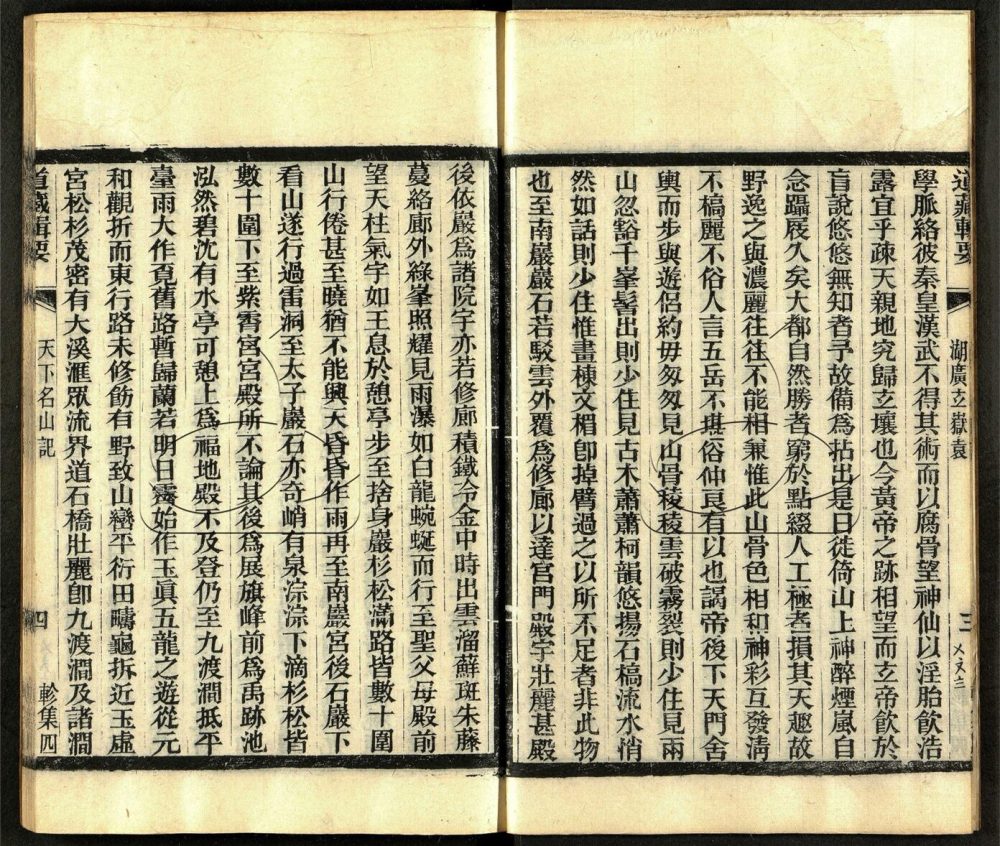 道藏輯要
湖廣玄嶽袁
三
學脈絡彼秦皇漢武不得其術而以腐骨望神仙以淫胎飲浩
露宜乎疎天親地究歸玄壤也今黃帝之跡相望而玄帝飲於
盲說悠悠無知者予故備為拈出是日徙倚山上神醉煙嵐自
念躡屐久矣大都自然勝者窮於點綴人工極者損其天趣故
野逸之與濃麗往往不能相兼惟此山骨色相和神彩互發淸
不槁麗不俗人言五岳不堪俗仲良有以也謁帝後下天門舍
輿而步與遊侶約毋匆匆見山骨稜稜雲破霧裂則少住見兩
山忽豁千峯髻出則少住見古木蕭蕭柯韻悠揚石橋流水悄
然如話則少住惟畫棟文楣卽掉臂過之以所不足者非此物
也至南巖巖石若駁雲外覆爲修廊以達宫門殿宇壯麗甚殿
後依巖爲諸院宇亦若修廊積鐵令金中時出雲溜蘚斑朱藤
蔓絡廊外綠峯照耀見雨瀑如白龍蜿蜒而行至聖父母殿前
望天柱氣字如王息於憩亭步至捨身巖杉松滿路皆數十圍
山行倦甚至曉猶不能興天昏昏作雨再至南巖宮後石巖下
看山遂行過雷洞至太子巖石亦奇峭有泉淙淙下滴杉松皆
數十圍下至紫霄宮宮殿所不論其後爲展旗峰前爲禹跡池
泓然碧沈有水亭可憩上爲福地殿不及登仍至九渡澗抵平
臺雨大作覓舊路暫歸蘭若明日靈始作玉眞五龍之遊從元
和觀折而東行路未修飭有野致山巒平衍田疇龜拆近玉虛
宮松杉茂密有大溪滙眾流界道石橋壯麗卽九渡澗及諸澗
道藏輯要
天下名山記
四
軫集四